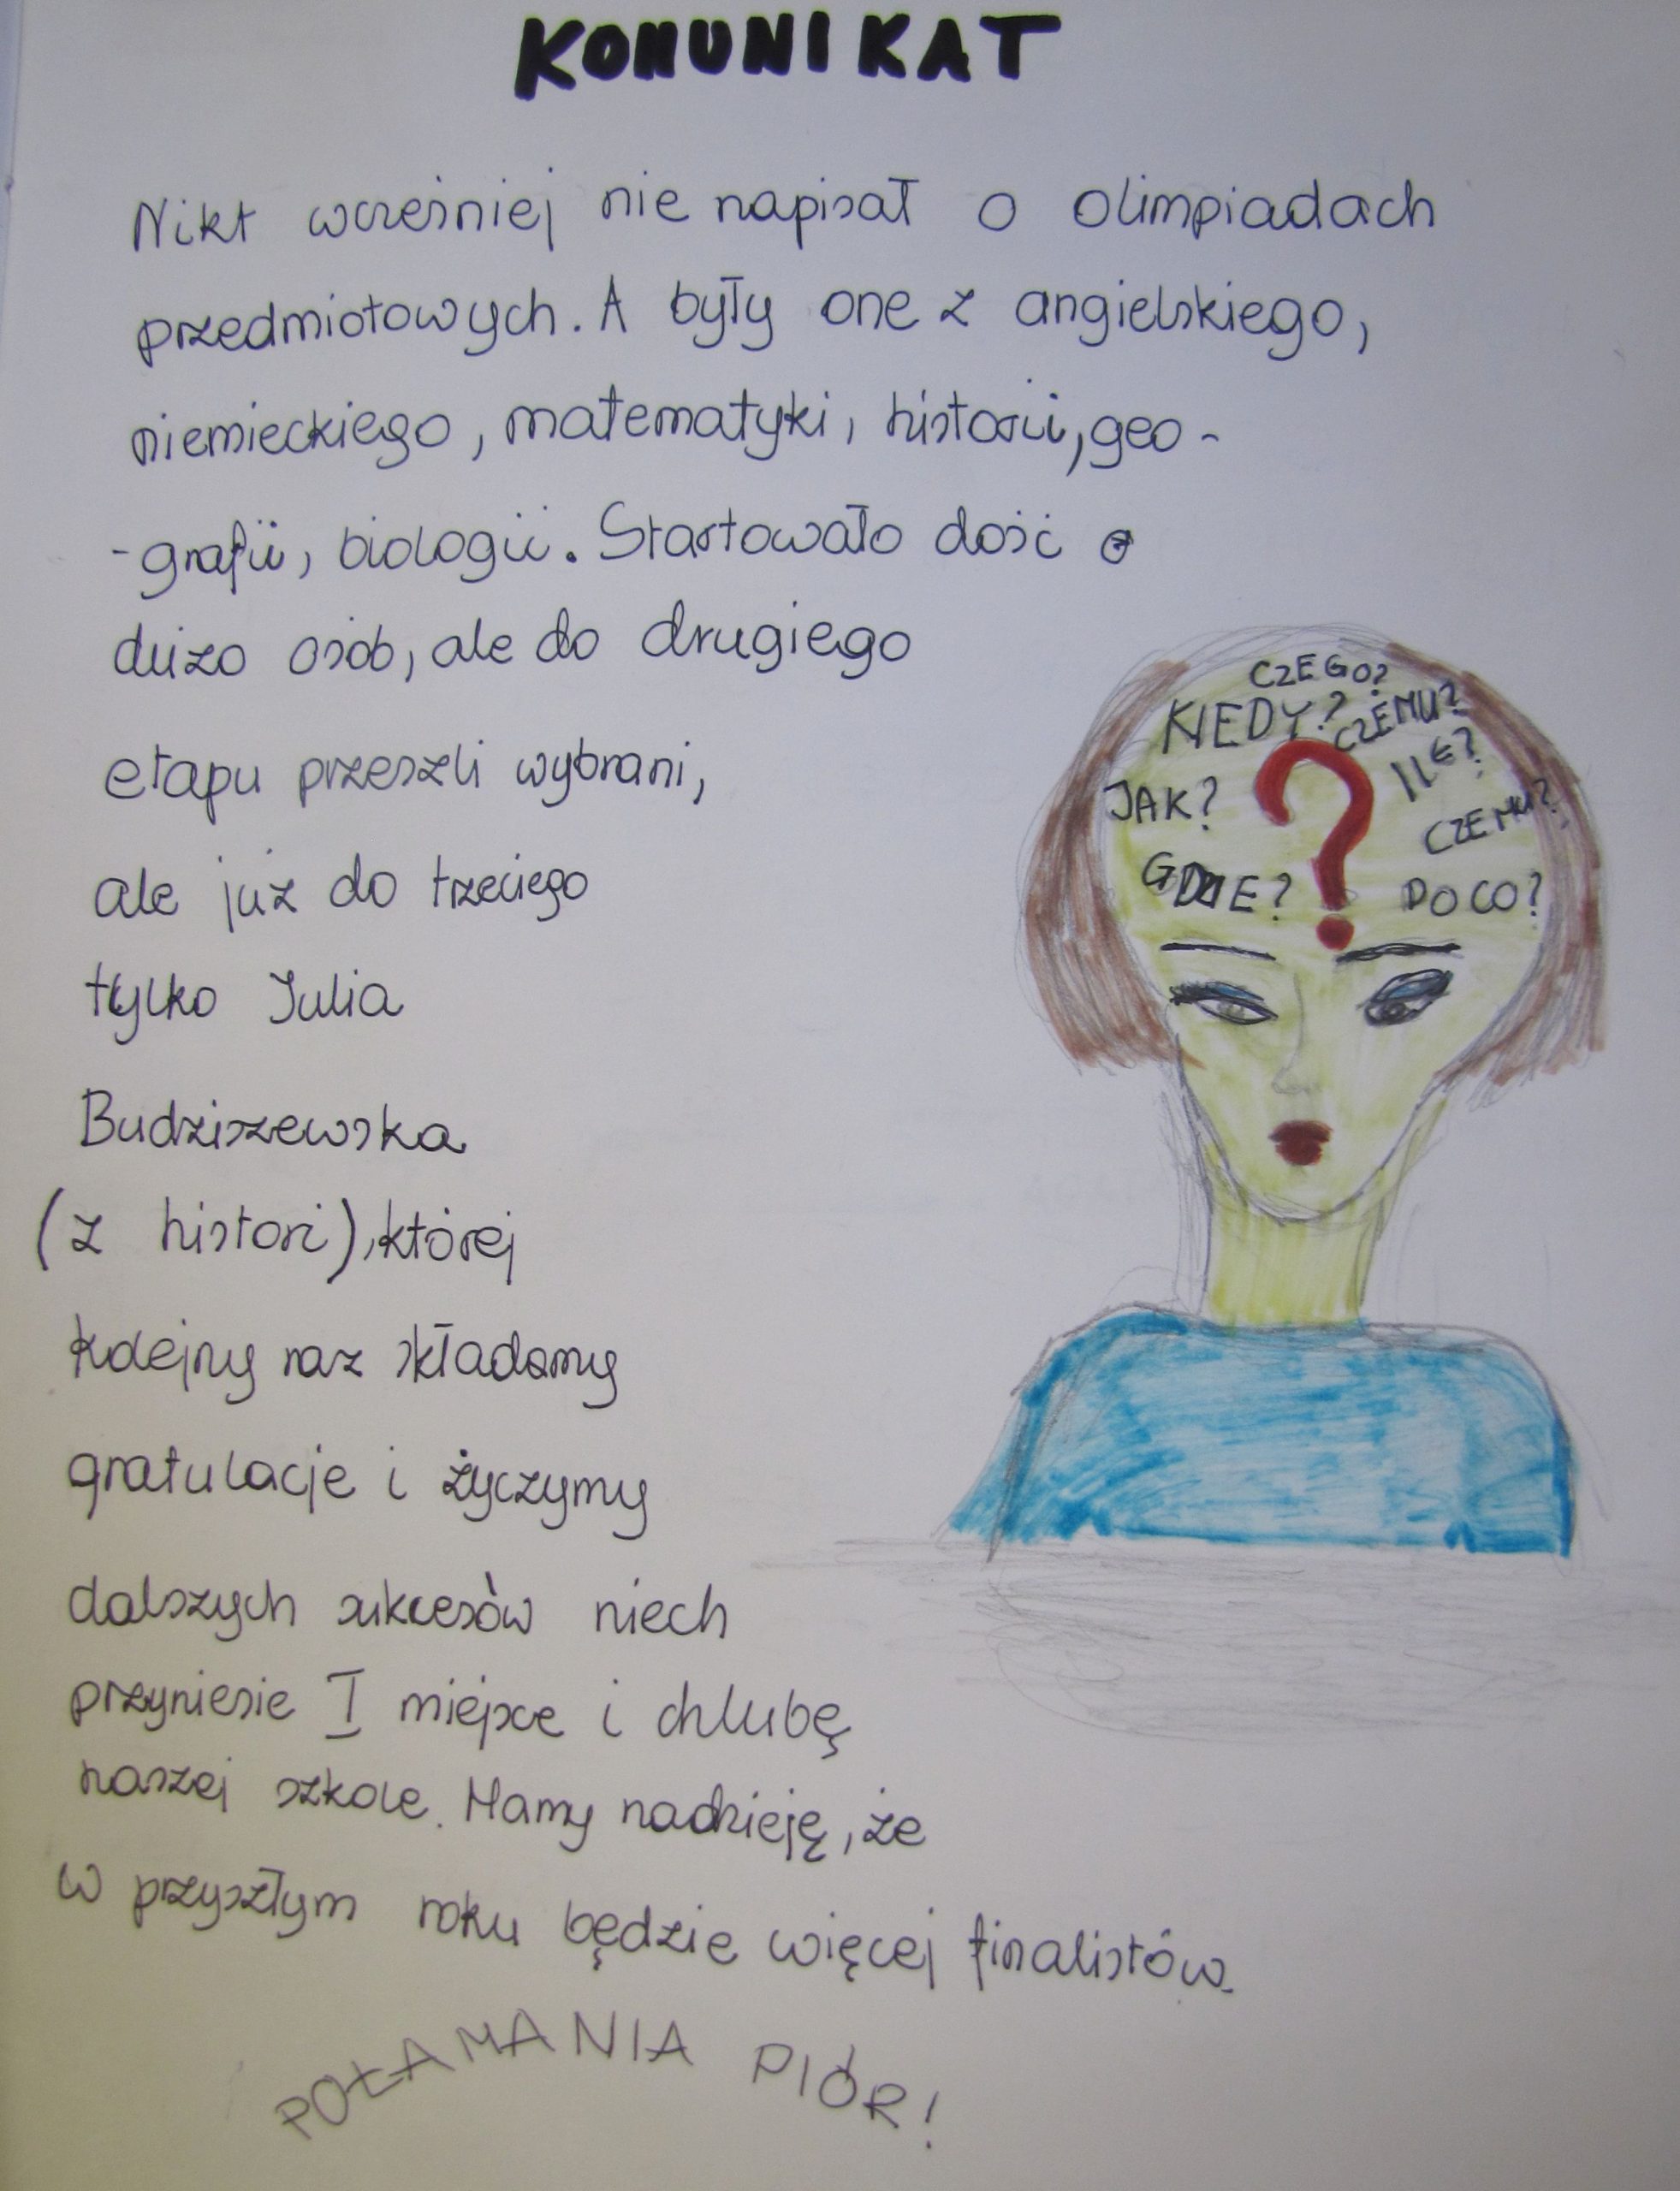 KOMUNIKAT
Nikt wcześniej nie napisał o olimpiadach
przedmiotowych. A były one z angielskiego,
niemieckiego, matematyki, historii, geo-
-grafii, biologii. Startowało dość
dużo osób, ale do drugiego
etapu przeszli wybrani,
ale już do trzeciego
tylko Julia
Budziszewska
(z histori), której
kolejny raz składamy
gratulacje i życzymy
dalszych sukcesów niech
przyniesie I miejsce i chlubę
naszej szkole. Mamy nadzieję, że
w przyszłym roku będzie więcej finalistów.
POŁAMANIA PIÓR!
CZEGO?
KIEDY? CZEMU?
ILE?
JAK?
CZEMU?
GDZIE?
?
PO CO?